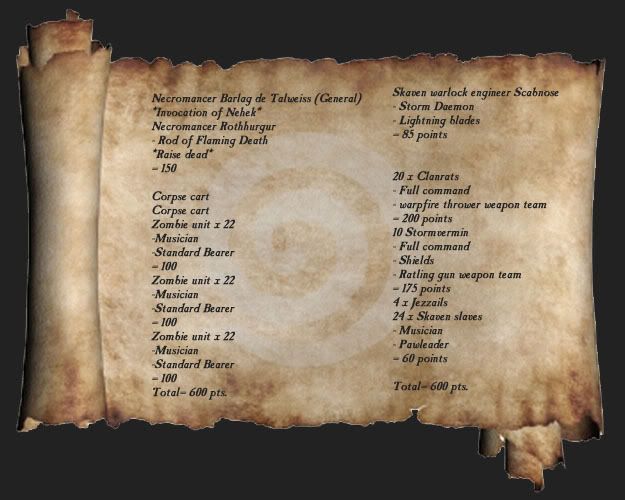 Necromancer Barlag de Talweiss (General)
"Invocation of Nehek"
Necromancer Rothhurgur
- Rod of Flaming Death
"Raise dead"
= 150
Corpse cart
Corpse cart
Zombie unit x 22
-Musician
-Standard Bearer
= 100
Zombie unit x 22
-Musician
-Standard Bearer
= 100
Zombie unit x 22
-Musician
-Standard Bearer
= 100
Total= 600 pts.
Skaven warlock engineer Scabnose
- Storm Daemon
- Lightning blades
= 85 points
20 x Clanrats
- Full command
- warpfire thrower weapon team
= 200 points
10 Stormvermin
- Full command
- Shields
- Ratling gun weapon team
= 175 points
4 x Jezzails
24 x Skaven slaves
- Musician
- Pawleader
= 60 points
Total= 600 pts.